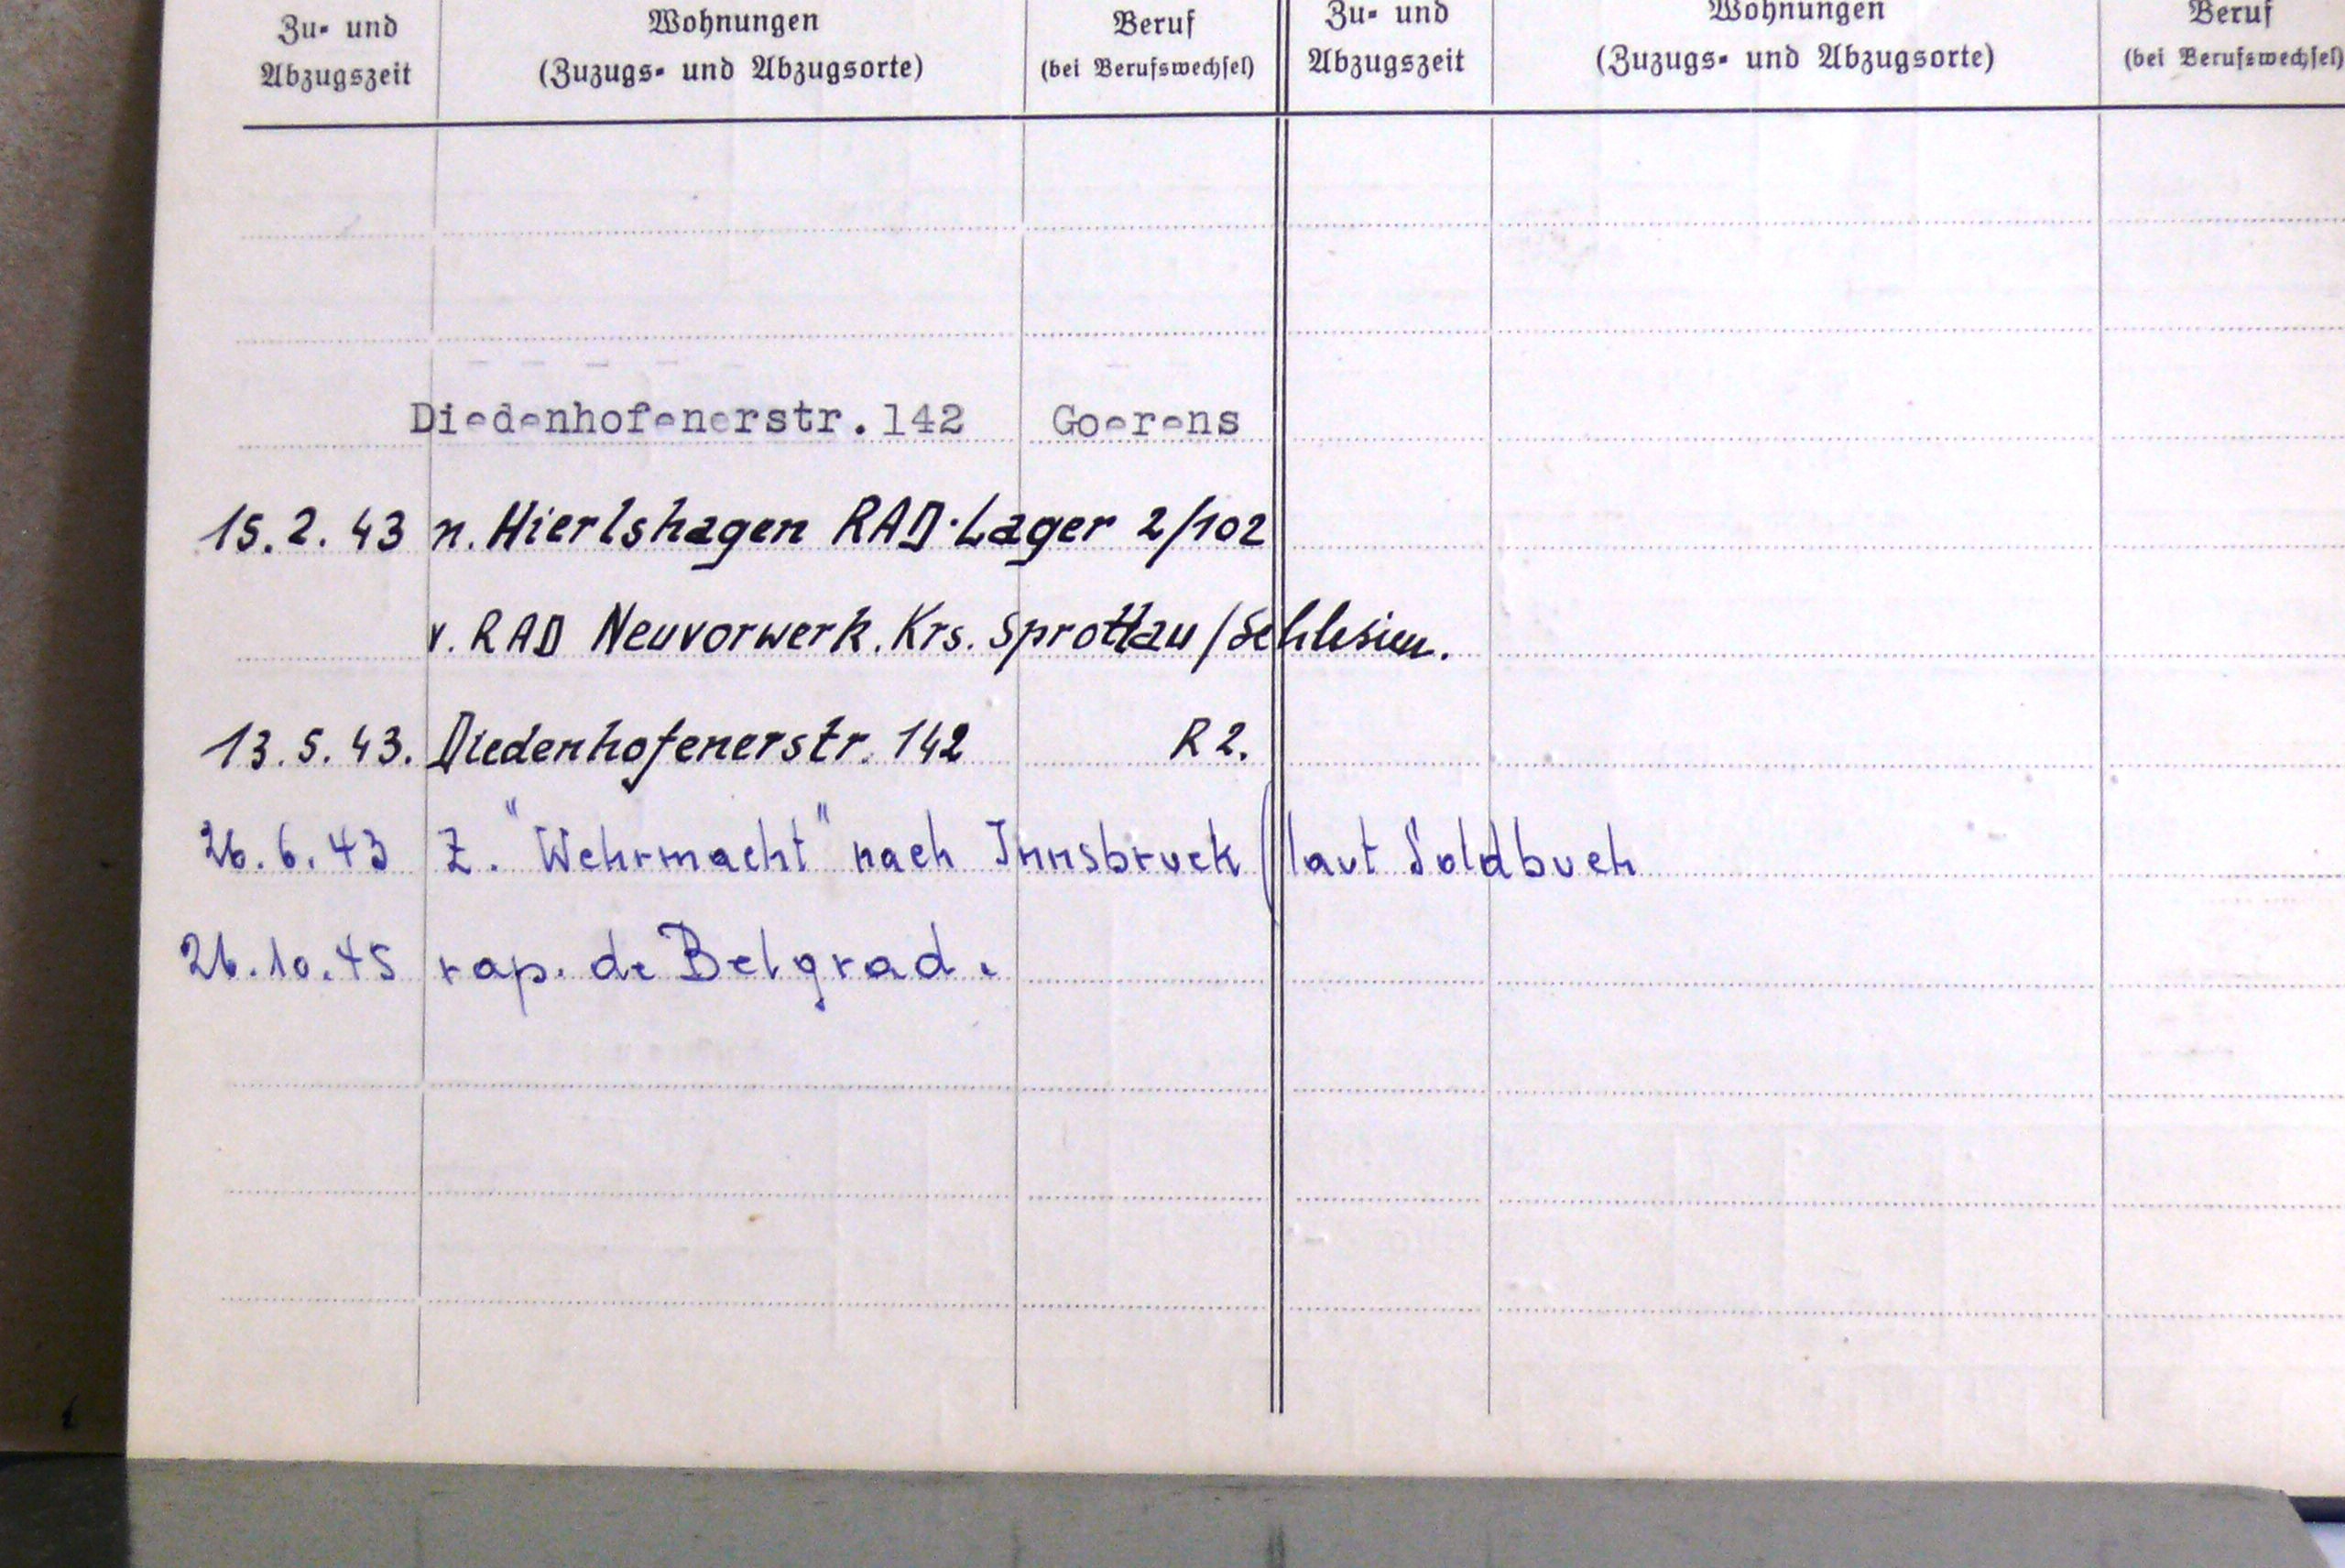 Zu- und Wohnungen Beruf Zu- und Wohnungen Beruf
Abzugszeit (Zuzugs- und Abzugsorte) (bei Berufswechsel) Abzugszeit (Zuzugs- und Abzugsorte) (bei Berufswechsel)
Diedenhofenerstr. 142 Goerens
15.2.43 n. Hierlshagen RAD-Lager 2/102
v. RAD Neuvorwerk. Krs. Sprottau/Schlesien.
13.5.43. Diedenhofenerstr. 142 R 2.
26.6.43 Z. "Wehrmacht" nach Innsbruck (laut Soldbuch
26.10.45 rap. de Belgrad.